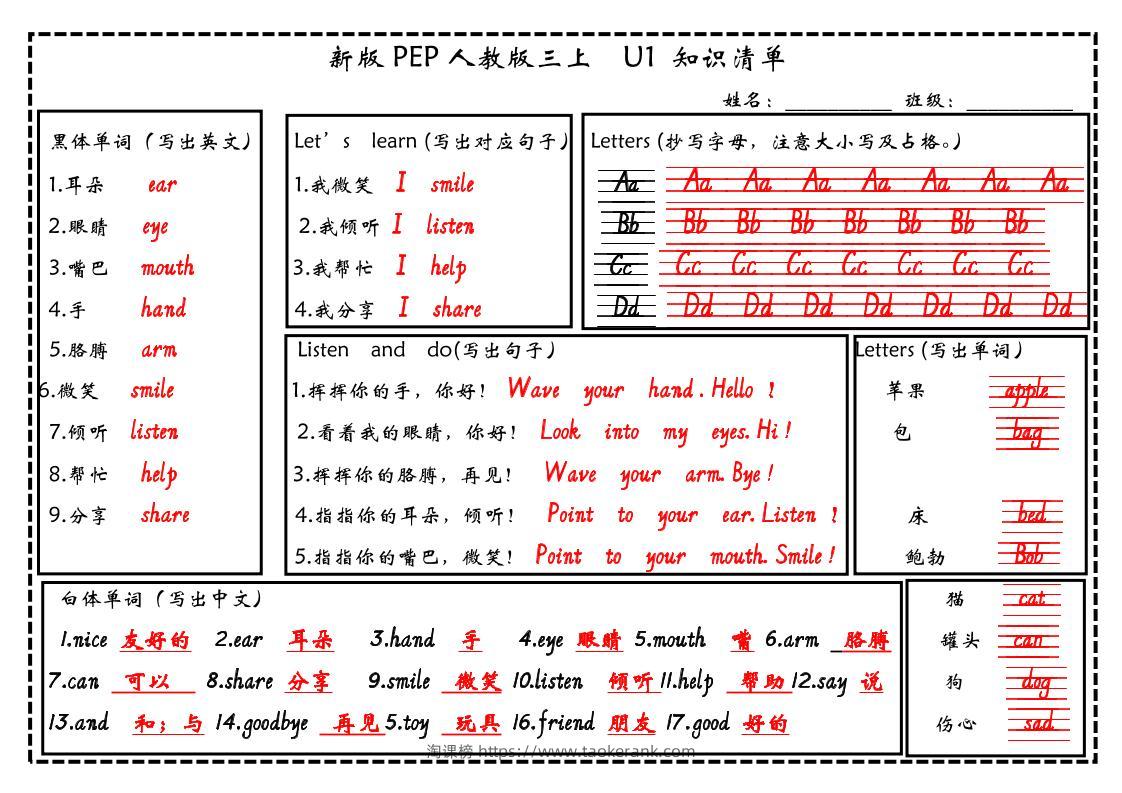 新版 PEP 人教版三上 U1 知识清单
姓名：__________ 班级：__________
黑体单词（写出英文）
1.耳朵 ear
2.眼睛 eye
3.嘴巴 mouth
4.手 hand
5.胳膊 arm
6.微笑 smile
7.倾听 listen
8.帮忙 help
9.分享 share
Let's learn (写出对应句子)
1.我微笑 I smile
2.我倾听 I listen
3.我帮忙 I help
4.我分享 I share
Letters (抄写字母，注意大小写及占格。)
Aa Aa Aa Aa Aa Aa Aa Aa
Bb Bb Bb Bb Bb Bb Bb Bb
Cc Cc Cc Cc Cc Cc Cc Cc
Dd Dd Dd Dd Dd Dd Dd Dd
Listen and do(写出句子)
1.挥挥你的手，你好！ Wave your hand. Hello !
2.看着我的眼睛，你好！ Look into my eyes. Hi !
3.挥挥你的胳膊，再见！ Wave your arm. Bye !
4.指指你的耳朵，倾听！ Point to your ear. Listen !
5.指指你的嘴巴，微笑！ Point to your mouth. Smile !
Letters (写出单词)
苹果 apple
包 bag
床 bed
鲍勃 Bob
猫 cat
罐头 can
狗 dog
伤心 sad
白体单词（写出中文）
1.nice 友好的 2.ear 耳朵 3.hand 手 4.eye 眼睛 5.mouth 嘴 6.arm _胳膊
7.can 可以 8.share 分享 9.smile 微笑 10.listen 倾听 11.help 帮助 12.say 说
13.and 和；与 14.goodbye 再见 5.toy 玩具 16.friend 朋友 17.good 好的
淘课榜 https://www.taokerank.com